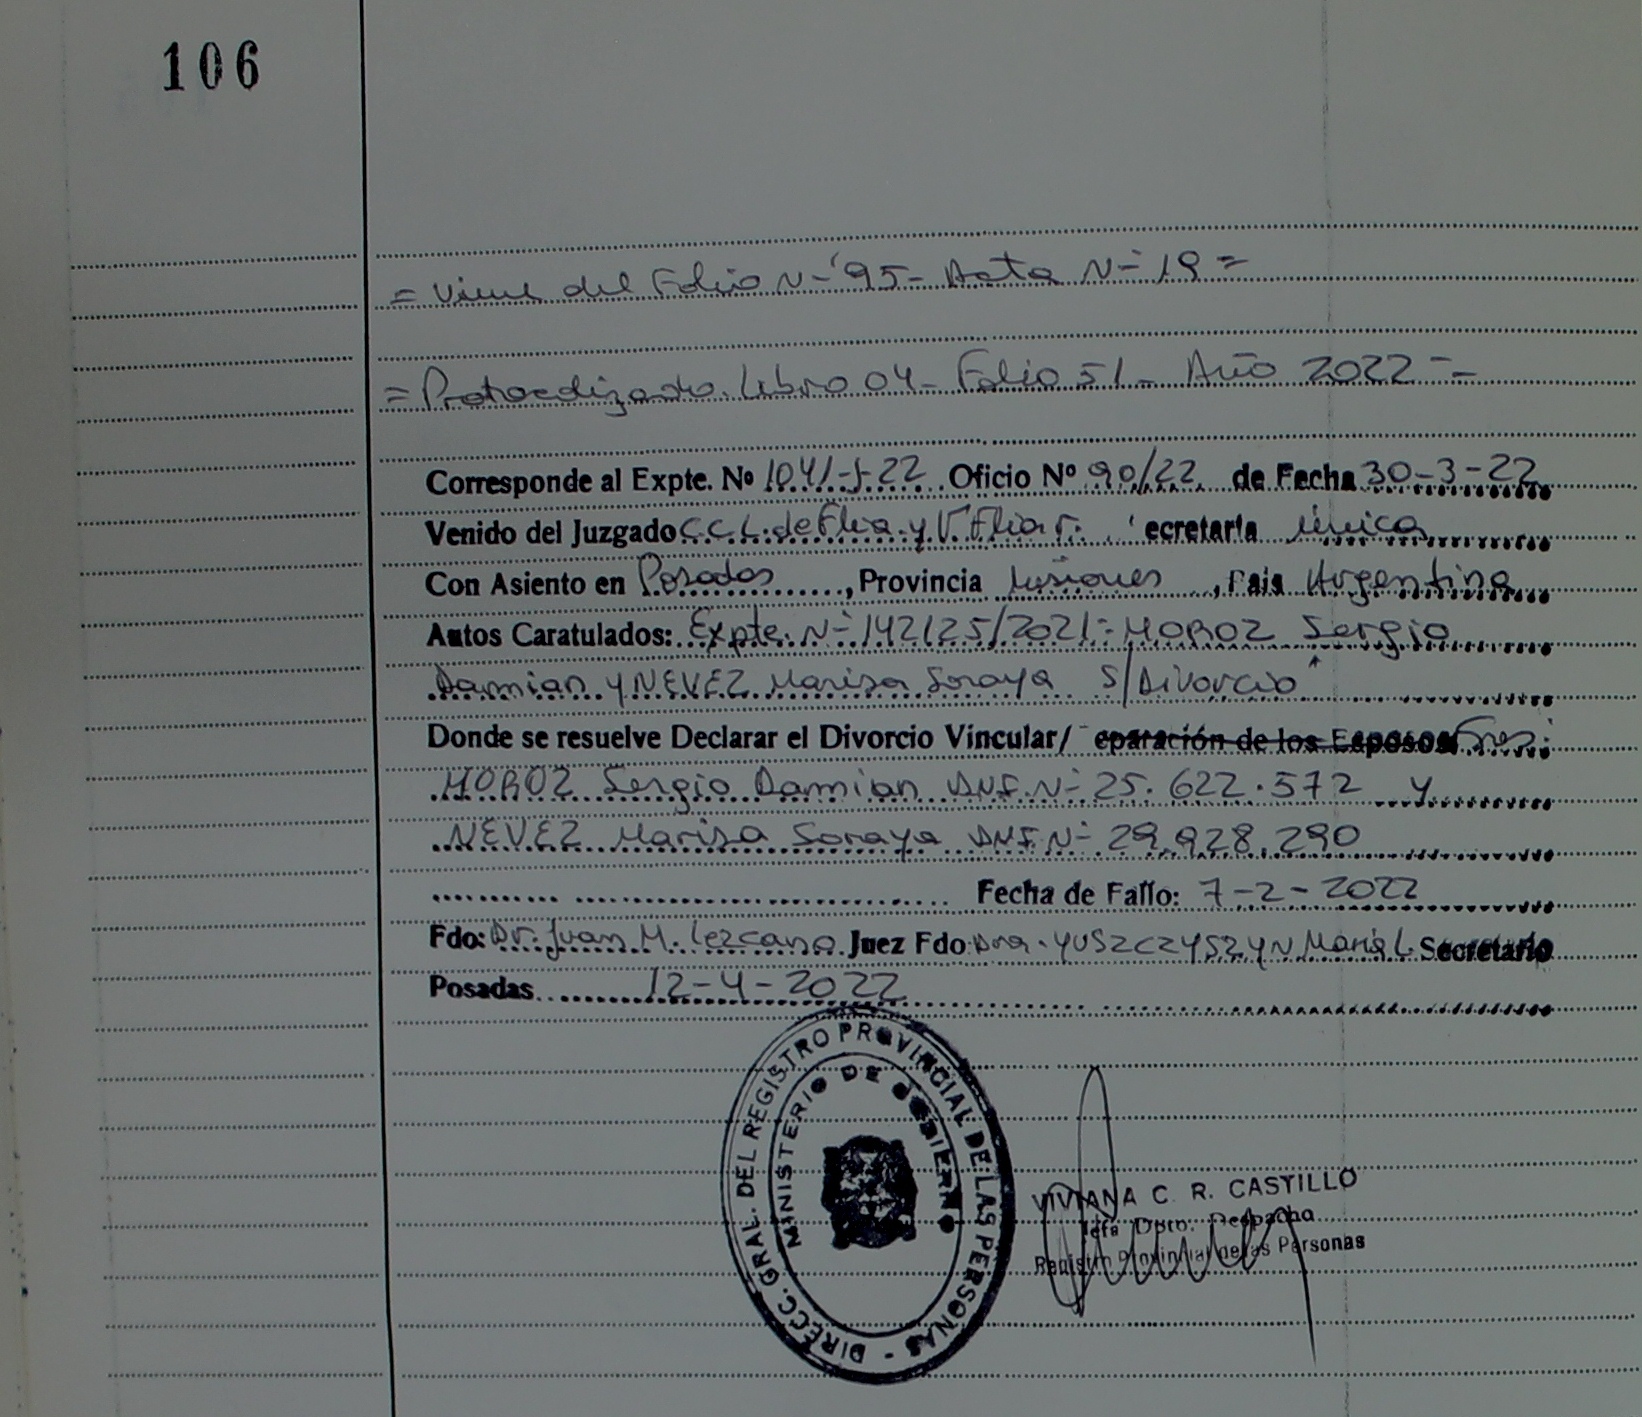 106
= Viene del Folio N- 95- Acta N- 19 =
= Protocolizado. Libro 04- Folio 51- Año 2022 -
Corresponde al Expte. Nº 1041-J-22 Oficio Nº 90/22 de Fecha 30-3-22
Venido del Juzgado C.C.L. de Flia. y V. Fliar. ecretaria única
Con Asiento en Posadas, Provincia Misiones, Pais Argentina
Autos Caratulados: Expte. N- 142125/2021- MOROZ Sergio
Damian y NEVEZ Marisa Soraya S/Divorcio"
Donde se resuelve Declarar el Divorcio Vincular/ eparación de los Esposos Sres:
MOROZ Sergio Damian DNI. N- 25.622.572 y
NEVEZ Marisa Soraya DNI. N- 29.928.290
Fecha de Fallo: 7-2-2022
Fdo: Dr. Juan M. Lezcano Juez Fdo Dra. YUSZCZYSZYN Maria L. Secretario
Posadas 12-4-2022
DIRECC. GRAL. DEL REGISTRO PROVINCIAL DE LAS PERSONAS -
MINISTERIO DE GOBIERNO
VIVIANA C. R. CASTILLO
Jefa Dpto. Despacho
Registro Provincial de las Personas